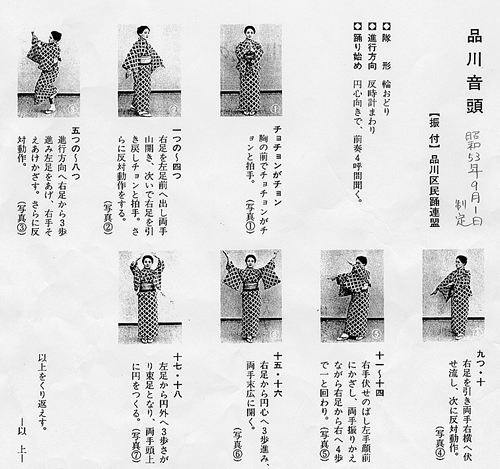 品川音頭
昭和53年9月1日
制定
【振付】品川区民踊連盟
◆隊　形　輪おどり
◆進行方向　反時計まわり
◆踊り始め　円心向きで、前奏4呼間聞く。
チョチョンがチョン
胸の前でチョチョンがチ
ョンと拍手。（写真①）
一つの〜四つ
右足を左足前へ出し両手
山開き、次いで右足を引
き戻しチョンと拍手。さ
らに反対動作をする。
（写真②）
五つの〜八つ
進行方向へ右足から3歩
進み左足をあげ、右手そ
えあけかざす。さらに反
対動作。（写真③）
九つ・十
右足を引き両手右横へ伏
せ流し、次に反対動作。
（写真④）
十一〜十四
右手伏せのばし左手顔前
にかざし、両手振りかえ
ながら右足から右へ4歩
で一と回わり。（写真⑤）
十五・十六
右足から円心へ3歩進み、
両手末広に開く。
（写真⑥）
十七・十八
左足から円外へ3歩さが
り束足となり、両手頭上
に円をつくる。（写真⑦）
以上をくり返えす。
―以上―